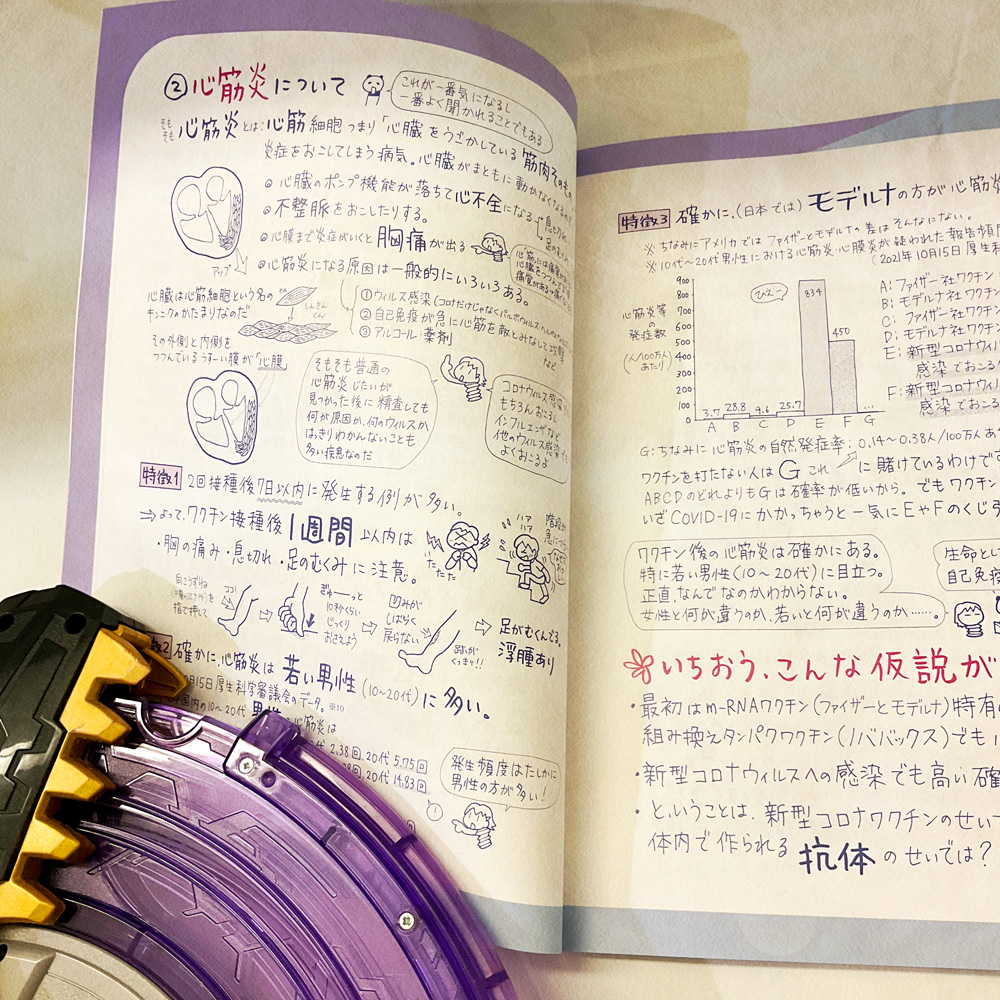 ②心筋炎について
これが一番気になるし
一番よく聞かれることでもある
そもそも心筋炎とは:心筋細胞つまり「心臓をうごかしている筋肉そのもの
炎症をおこしてしまう病気。心臓がまともに動かなくなるので
心臓のポンプ機能が落ちて心不全になる
息切れ
足のむくみ
不整脈をおこしたりする。
心膜まで炎症がいくと胸痛が出る
心筋には痛覚が
心臓をつつんで
痛覚があって痛い
心筋炎になる原因は一般的にいろいろある。
アップ
心臓は心筋細胞という名の
キンニクのかたまりなのだ
しんきんくん
①ウィルス感染(コロナだけじゃなくパルボウィルス・ヘルペスウィルス
②自己免疫が急に心筋を敵とみなして攻撃
③アルコール・薬剤
など
その外側と内側を
つつんでいるうすーい膜が「心膜」
そもそも普通の
心筋炎じたいが
見つかった後に精査しても
何が原因か、何のウィルスか
はっきりわかんないことも
多い疾患なのだ
コロナウィルス感染でも
もちろんおこるし
インフルエンザなど
他のウィルス感染でも
よくおこるよ
特徴1 2回接種後7日以内に発生する例が多い。
⇒よって、ワクチン接種後1週間以内は
・胸の痛み・息切れ・足のむくみに注意。
いたたた
ハァ
ハァ
階段が
急につらい
向こうずね
を指で押して
ココ!
ぎゅーーっと
10秒くらい
じっくり
おさえよう
凹みが
しばらく
戻らない
跡が
くっきり!!
足がむくんでる。
浮腫あり
徴2 確かに、心筋炎は若い男性(10~20代)に多い。
月15日厚生科学審議会のデータ。※10
国内の10~20代男性の心筋炎は
2.38回、20代 5.75回
20代 14.83回
発生頻度はたしかに
男性の方が多い!
特徴3 確かに、(日本では)モデルナの方が心筋炎
※ちなみにアメリカではファイザーとモデルナの差はそんなにない。
※10代~20代男性における心筋炎・心膜炎が疑われた報告頻度
(2021年10月15日厚生
心筋炎等
の
発症数
(人/100万人あたり)
900
800
700
600
500
400
300
200
100
0
ひえ~
3.7
28.8
9.6
25.7
834
450
…
A B C D E F G
A:ファイザー社ワクチン
B:モデルナ社ワクチン
C:ファイザー社ワクチン
D:モデルナ社ワクチン
E:新型コロナウィル
感染でおこる
F:新型コロナウィル
感染でおこる
G:ちなみに心筋炎の自然発症率:0.14~0.38人/100万人あ
ワクチンを打たない人はGこれに賭けているわけで
ABCDのどれよりもGは確率が低いから。でもワクチン
いざCOVID-19にかかっちゃうと一気にEやFのくじ
ワクチン後の心筋炎は確かにある。
特に若い男性(10~20代)に目立つ。
正直、なんでなのかわからない。
女性と何が違うのか、若いと何が違うのか……。
生命とし
自己免疫
いちおう、こんな仮説が
・最初はm-RNAワクチン(ファイザーとモデルナ)特有
組み換えタンパクワクチン(ノババックス)でも
・新型コロナウィルスへの感染でも高い確
・ということは、新型コロナワクチンのせい
体内で作られる抗体のせいでは?